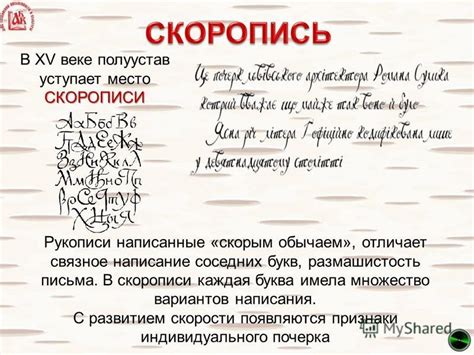 СКОРОПИСЬ
В XV веке полуустав
уступает место
СКОРОПИСИ
Це почерк львівського архітектора Романа Сулика
котрий вважає що майже так воно й було
Ясна річ літера Ґ офіційно кодифікована лише
у девятнадцятому столітті
Рукописи написанные «скорым обычаем», отличает
связное написание соседних букв, размашистость
письма. В скорописи каждая буква имела множество
вариантов написания.
С развитием скорости появляются признаки
индивидуального почерка
MyShared